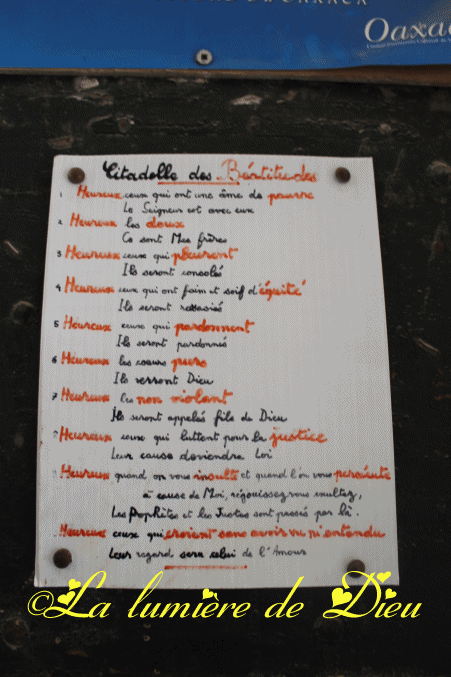 Oaxac
Citadelle des Béatitudes
1 Heureux ceux qui ont une âme de pauvre
Le Seigneur est avec eux
2 Heureux les doux
Ce sont Mes frères
3 Heureux ceux qui pleurent
Ils seront consolés
4 Heureux ceux qui ont faim et soif d'équité
Ils seront rassasiés
5 Heureux ceux qui pardonnent
Ils seront pardonnés
6 Heureux les cœurs purs
Ils verront Dieu
7 Heureux les non violant
Ils seront appelés fils de Dieu
Heureux ceux qui luttent pour la justice
Leur cause deviendra Loi
Heureux quand on vous insulte et quand l'on vous persécute
à cause de Moi, réjouissez vous exultez,
Les Prophètes et les Justes sont passés par là.
Heureux ceux qui croient sans avoir vu ni entendu
Leur regard sera celui de l'Amour
©La lumière de Dieu